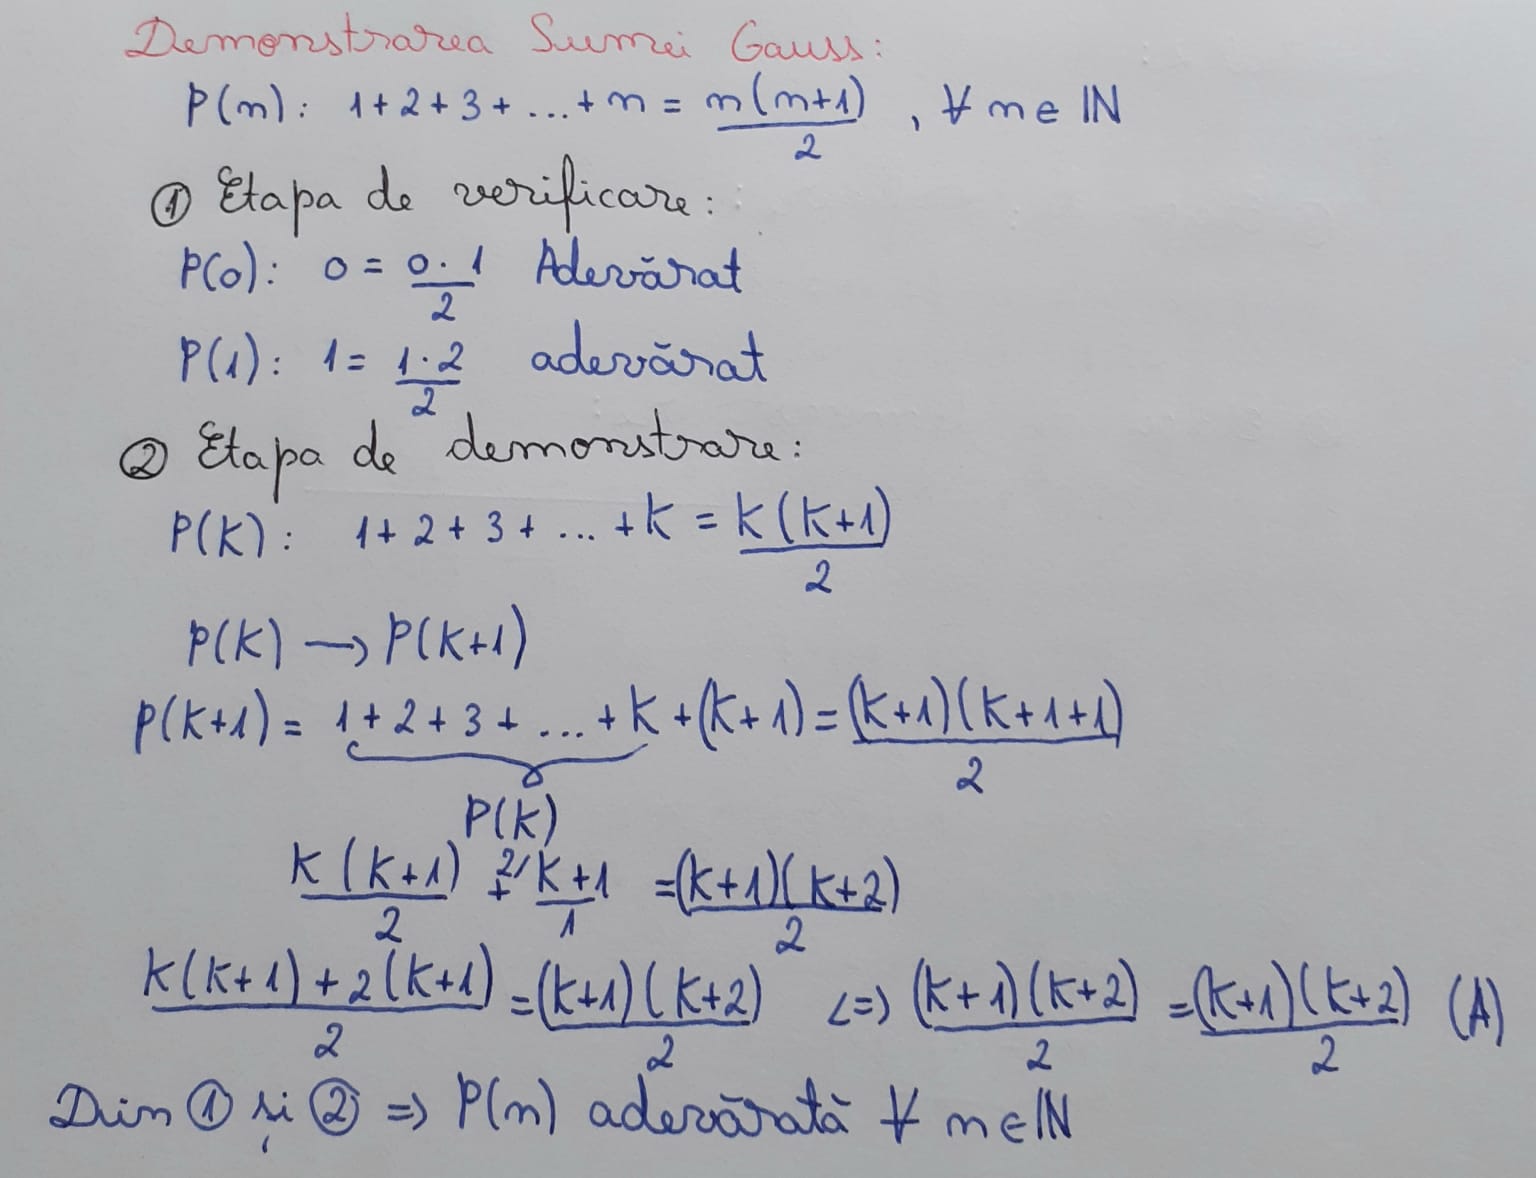 Demonstrarea Sumei Gauss:
P(n): 1+2+3+...+n = n(n+1)/2 , ∀ n∈ℕ
① Etapa de verificare:
P(0): 0 = 0·1/2 Adevărat
P(1): 1 = 1·2/2 adevărat
② Etapa de demonstrare:
P(k): 1+2+3+...+k = k(k+1)/2
P(k) → P(k+1)
P(k+1) = 1+2+3+...+k+(k+1) = (k+1)(k+1+1)/2
P(k)
k(k+1)/2 + ²⁾ k+1/1 = (k+1)(k+2)/2
k(k+1)+2(k+1)/2 = (k+1)(k+2)/2 <=> (k+1)(k+2)/2 = (k+1)(k+2)/2 (A)
Din ① și ② => P(n) adevărată ∀ n∈ℕ